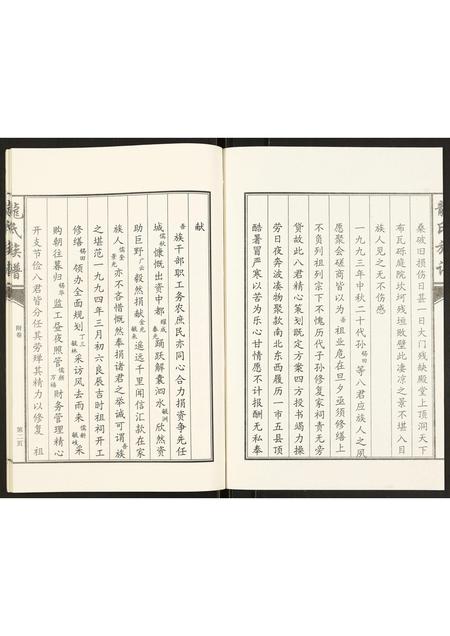 龍氏族譜
桑破旧损伤日甚一日大门残缺殿堂上顶洞天下
布瓦砾庭院坎坷残垣败壁此凄凉之景不堪入目
族人见之无不伤感
一九九三年中秋二十代孙锡田等八君应族人之夙
愿聚会磋商皆以为吾祖业危在旦夕亟须修缮上
不负列祖列宗下不愧历代子孙修复家祠责无旁
贷故此八君精心策划既定方案四方授书竭力操
劳日夜奔波凑物聚款南北东西履历一市五县顶
酷暑冒严寒以苦为乐心甘情愿不计报酬无私奉
献
吾族干部职工务农庶民亦同心合力捐资争先任
城儒秋慷慨出资中都耀成毓泰踊跃解囊泗水毓洲欣然资
助巨野广云毅然捐献金光毓美遥远千里闻信汇款在家
族人儒全景光亦不吝惜慨然奉捐诸君之举诚可谓吾族
之堪范一九九四年三月初六良辰吉时祖祠开工
修缮锡田领办全面规划丁工毓林采访风去雨来儒轩毓岐采
购朝往暮归锡华监工昼夜照管儒颜万福财务管理精心
开支节俭八君皆分任其劳殚其精力以修复 祖
龍氏族譜
附卷
第二页